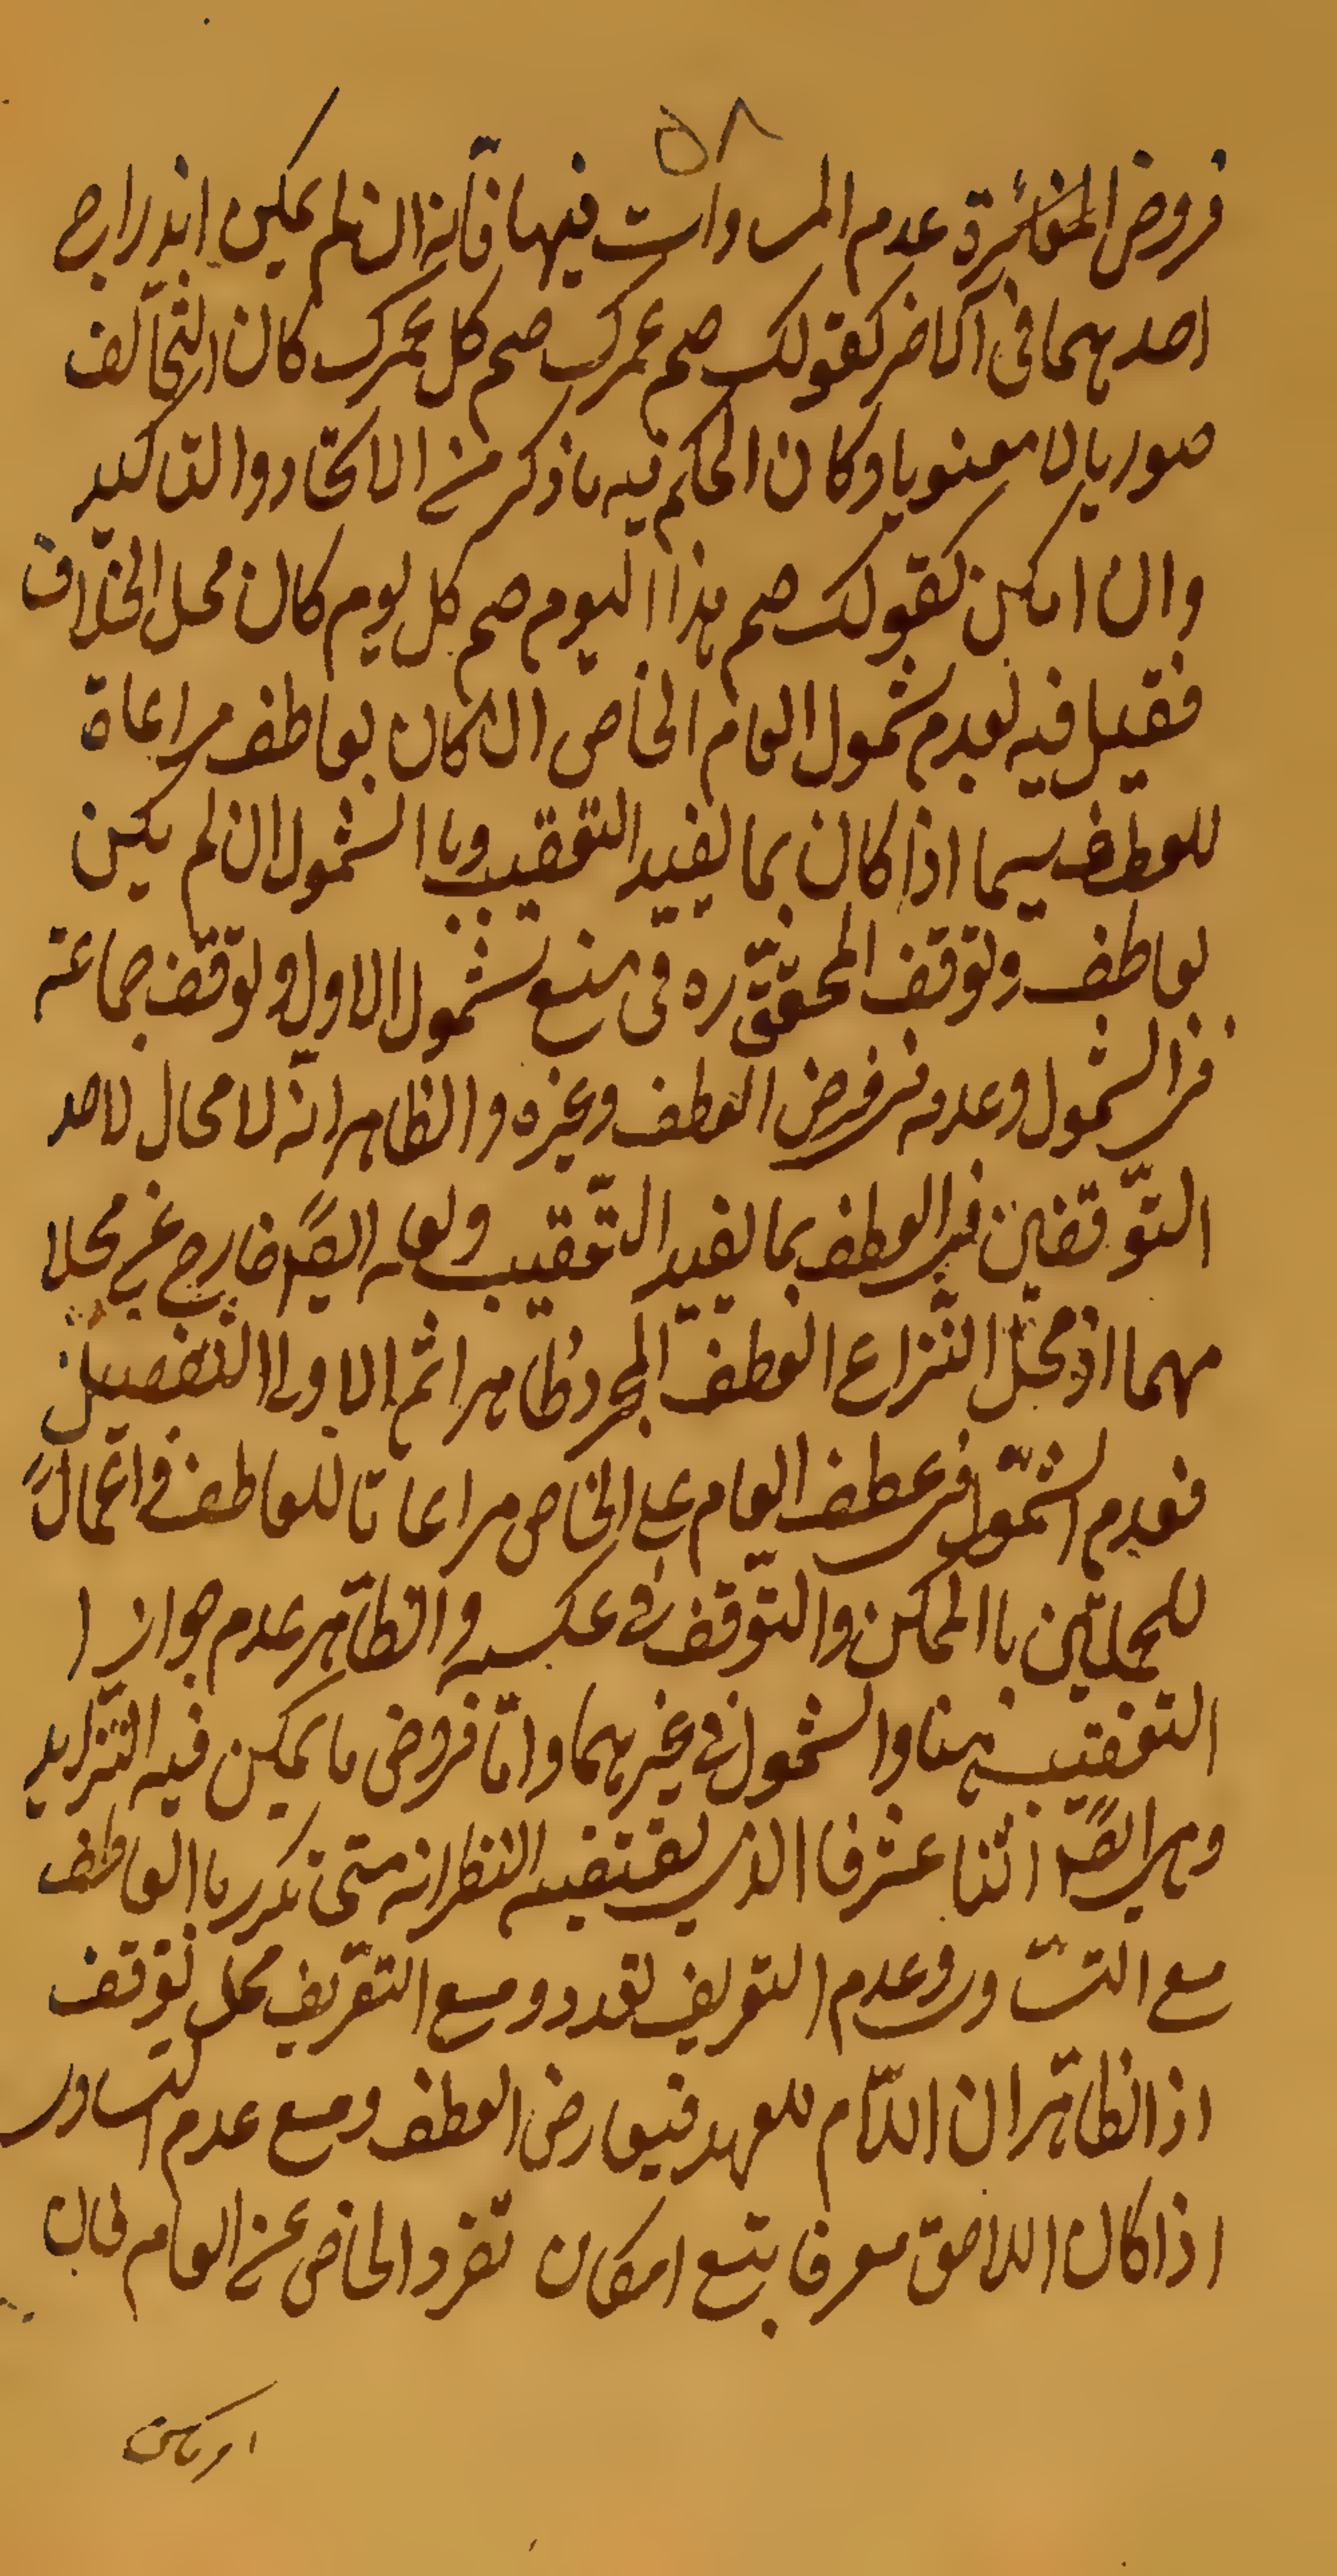 ٥٨
فروض المغائرة عدم المساوات فيها فانّه ان لم يمكن اندراج
احدهما فى الاخر كقولك صم عمرك صم كل عمرك كان التخالف
صوريا لا معنويا وكان الحكم فيه ما ذكر من الاتحاد والتاكيد
وان امكن كقولك صم هذا اليوم صم كل يوم كان محل الخلاف
فقيل فيه بعدم شمول العام الخاص ان كان بعاطف مراعاة
للعطف سيما اذا كان بما يفيد التعقيب وبا الشمول ان لم يكن
بعاطف وتوقف المحقّق ره فى منع شمول الاول وتوقف جماعة
فى الشمول وعدمه فى فرض العطف وغيره والظاهر انه لا مجال لاحد
التوّقفين فى العطف بما يفيد التّعقيب ولعله ايضًا خارج عن محلا
مهما اذ محلّ النّزاع العطف المجرد ظاهرا ثم الاولى التفصيل
فعدم الشمّول فى عطف العام على الخاص مراعاتا للعاطف فى اعمالً
للمحلاّين با الممكن والتّوقف فى عكسه والظّاهر عدم جواز ا
التعقيب هنا والشمول فى غيرهما وامّا فروض ما يمكن فيه التّزايد
وهى ايضًا اثنا عشر فا الذى يقتضيه النظر انه متى تكرر با العاطف
مع التساور وعدم التعريف تعدد ومع التعّريف محل توقف
اذ الظاهّر ان اللاّم للعهد فيعارض العطف ومع عدم التساور
اذا كان اللاحق معرفا يتبع امكان تفرد الخاص عن العام فان
امكن